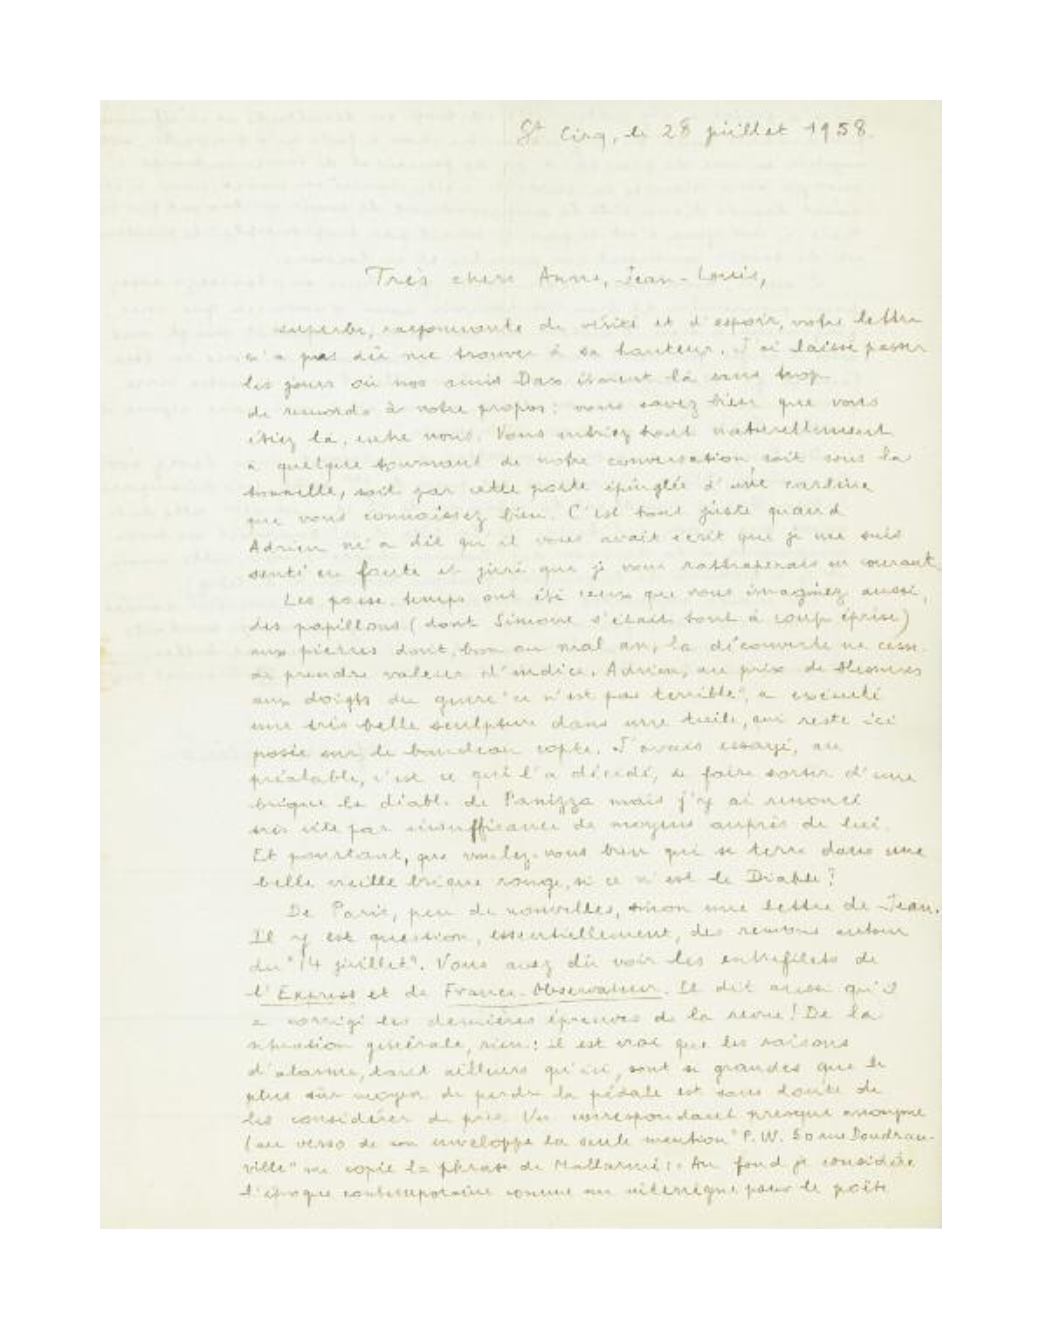 St Cirq, le 28 juillet 1958.
Très chers Anne, Jean-Louis,
superbe, rayonnante de vérité et d'espoir, votre lettre
n'a pas dû me trouver à sa hauteur. J'ai laissé passer
les jours où nos amis Dax étaient là sans trop
de remords à votre propos : vous savez bien que vous
étiez là, entre nous. Vous entriez tout naturellement
à quelque tournant de notre conversation, soit sous la
tonnelle, soit par cette porte épinglée d'une carline
que vous connaissez bien. C'est tout juste quand
Adrien m'a dit qu'il vous avait écrit que je me suis
senti en faute et juré que je vous rattraperais en courant.
Les passe-temps ont été ceux que vous imaginez aussi,
des papillons (dont Simone s'était tout à coup éprise)
aux pierres dont, bon an mal an, la découverte ne cesse
de prendre valeur d'indice. Adrien, au prix de blessures
aux doigts du genre "ce n'est pas terrible", a exécuté
une très belle sculpture dans une tuile, qui reste ici
posée sur le bandeau copte. J'avais essayé, au
préalable, c'est ce qui l'a décidé, de faire sortir d'une
brique le diable de Panizza mais j'y ai renoncé
très vite par insuffisance de moyens auprès de lui.
Et pourtant, que voulez-vous bien qui se terre dans une
belle vieille brique rouge, si ce n'est le Diable ?
De Paris, peu de nouvelles, sinon une lettre de Jean.
Il y est question, essentiellement, des remous autour
du "14 juillet". Vous avez dû voir les entrefilets de
l'Express et de France-Observateur. Il dit aussi qu'il
a corrigé les dernières épreuves de la revue ! De la
situation générale, rien : il est vrai que les raisons
d'alarme, tant ailleurs qu'ici, sont si grandes que le
plus sûr moyen de perdre la pédale est sans doute de
les considérer de près. Un correspondant presque anonyme
(au verso de son enveloppe la seule mention "P.W. 50 rue Doudeau-
ville" me copie la phrase de Mallarmé : « Au fond je considère
l'époque contemporaine comme un interrègne pour le poète